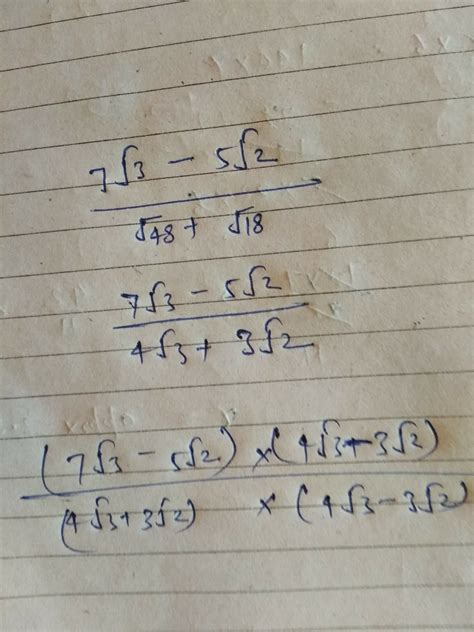 7√3 - 5√2
√48 + √18
7√3 - 5√2
4√3 + 3√2
(7√3 - 5√2) × (4√3 - 3√2)
(4√3+3√2) × (4√3 - 3√2)